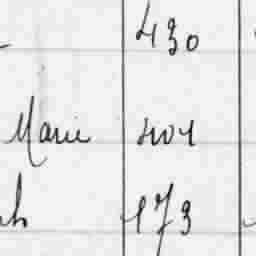 430
Marie 404
173